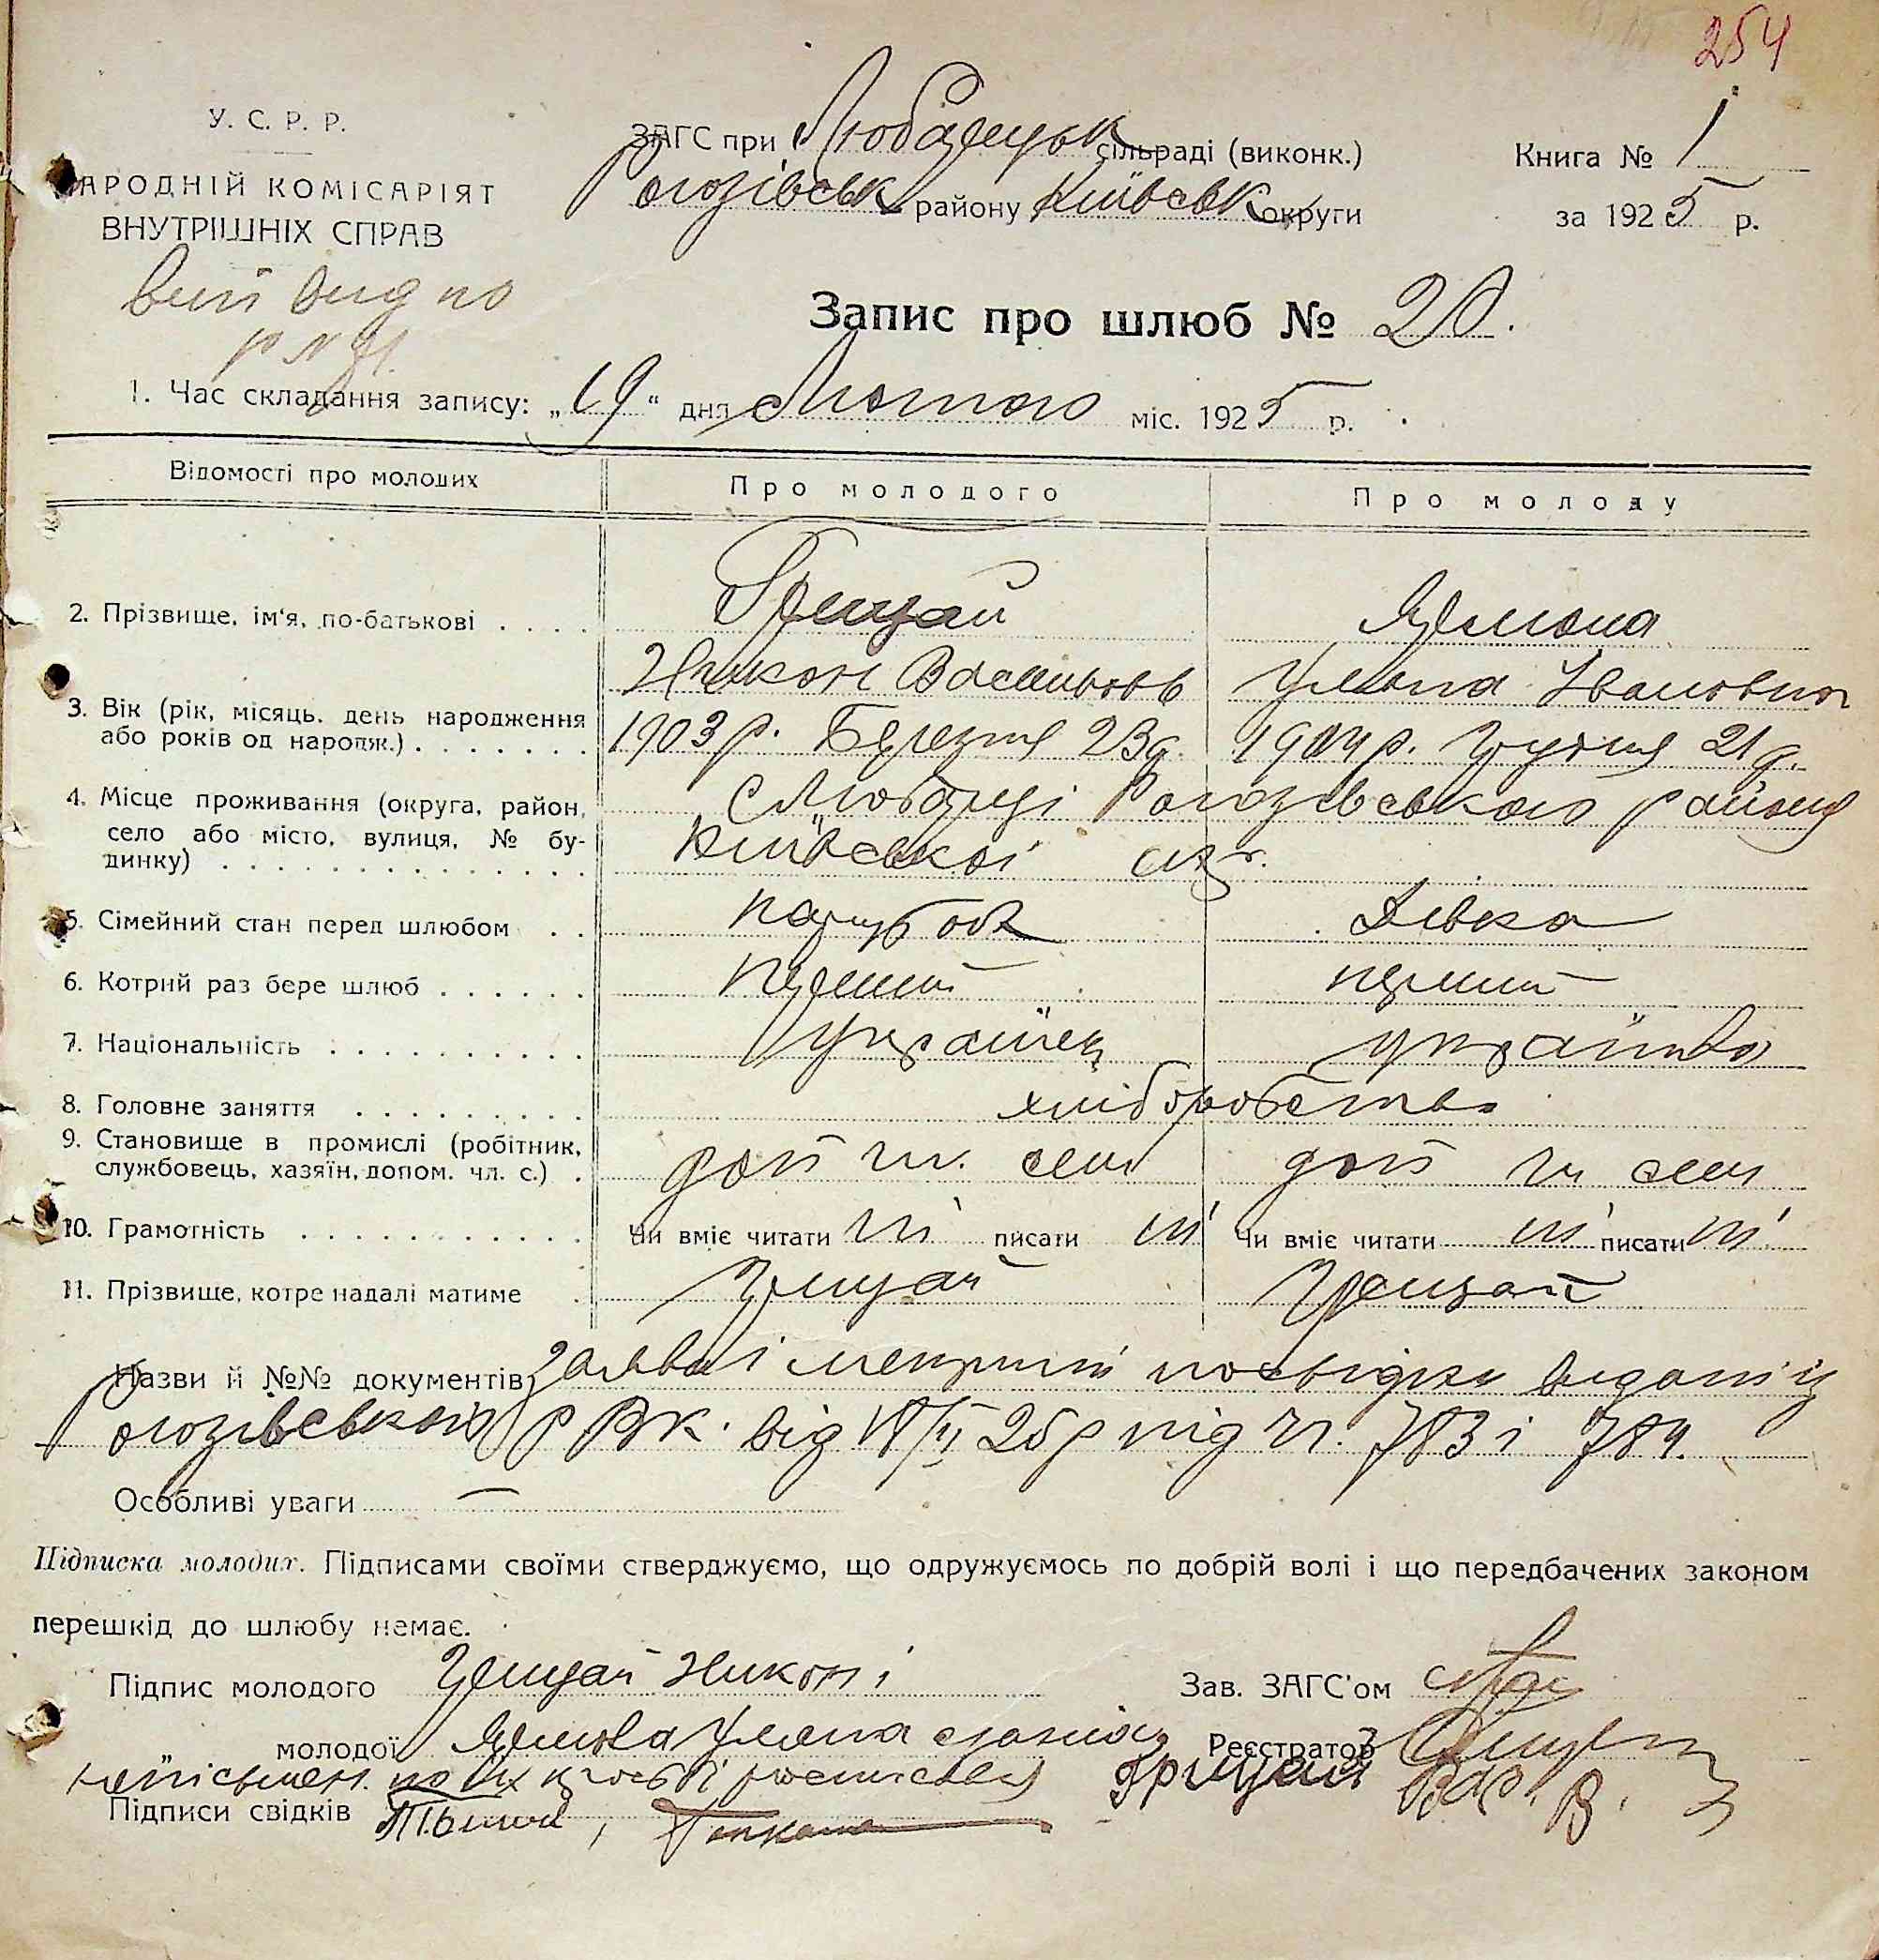 254
У. С. Р. Р.
НАРОДНІЙ КОМІСАРІЯТ
ВНУТРІШНІХ СПРАВ
ЗАГС при Любарецьк сільраді (виконк.)
Рогозівськ району Київськ округи
Книга № 1
за 1925 р.
Запис про шлюб № 20.
1. Час складання запису: „19“ дня Лютого міс. 1925 р.
Відомості про молодих Про молодого Про молоду
2. Прізвище, ім'я, по-батькові Грицай
Никон Васильов Уляна Івановна
3. Вік (рік, місяць, день народження або років од народж.) 1903 р. Березня 23 д. 1904 р. Грудня 21 д.
4. Місце проживання (округа, район, село або місто, вулиця, № будинку) с Любарці Рогозівського району
Київської окр.
5. Сімейний стан перед шлюбом парубок Дівка
6. Котрий раз бере шлюб перший перший
7. Національність Українец українка
8. Головне заняття хліборобство
9. Становище в промислі (робітник, службовець, хазяїн, допом. чл. с.) доп чл. сем доп чл сем
10. Грамотність Чи вміє читати ні писати ні Чи вміє читати ні писати ні
11. Прізвище, котре надалі матиме Грицай Грицай
Назви й №№ документів Заява і посвідки видані
Рогозівським РВК. від 18/II 25 р під чл. 783 і 784.
Особливі уваги —
Підписка молодих. Підписами своїми стверджуємо, що одружуємось по добрій волі і що передбачених законом
перешкід до шлюбу немає.
Підпис молодого Грицай Никон і
Зав. ЗАГС'ом
„ молодої Уляна
Реєстратор
неписьмен. по їх Грицай
Підписи свідків